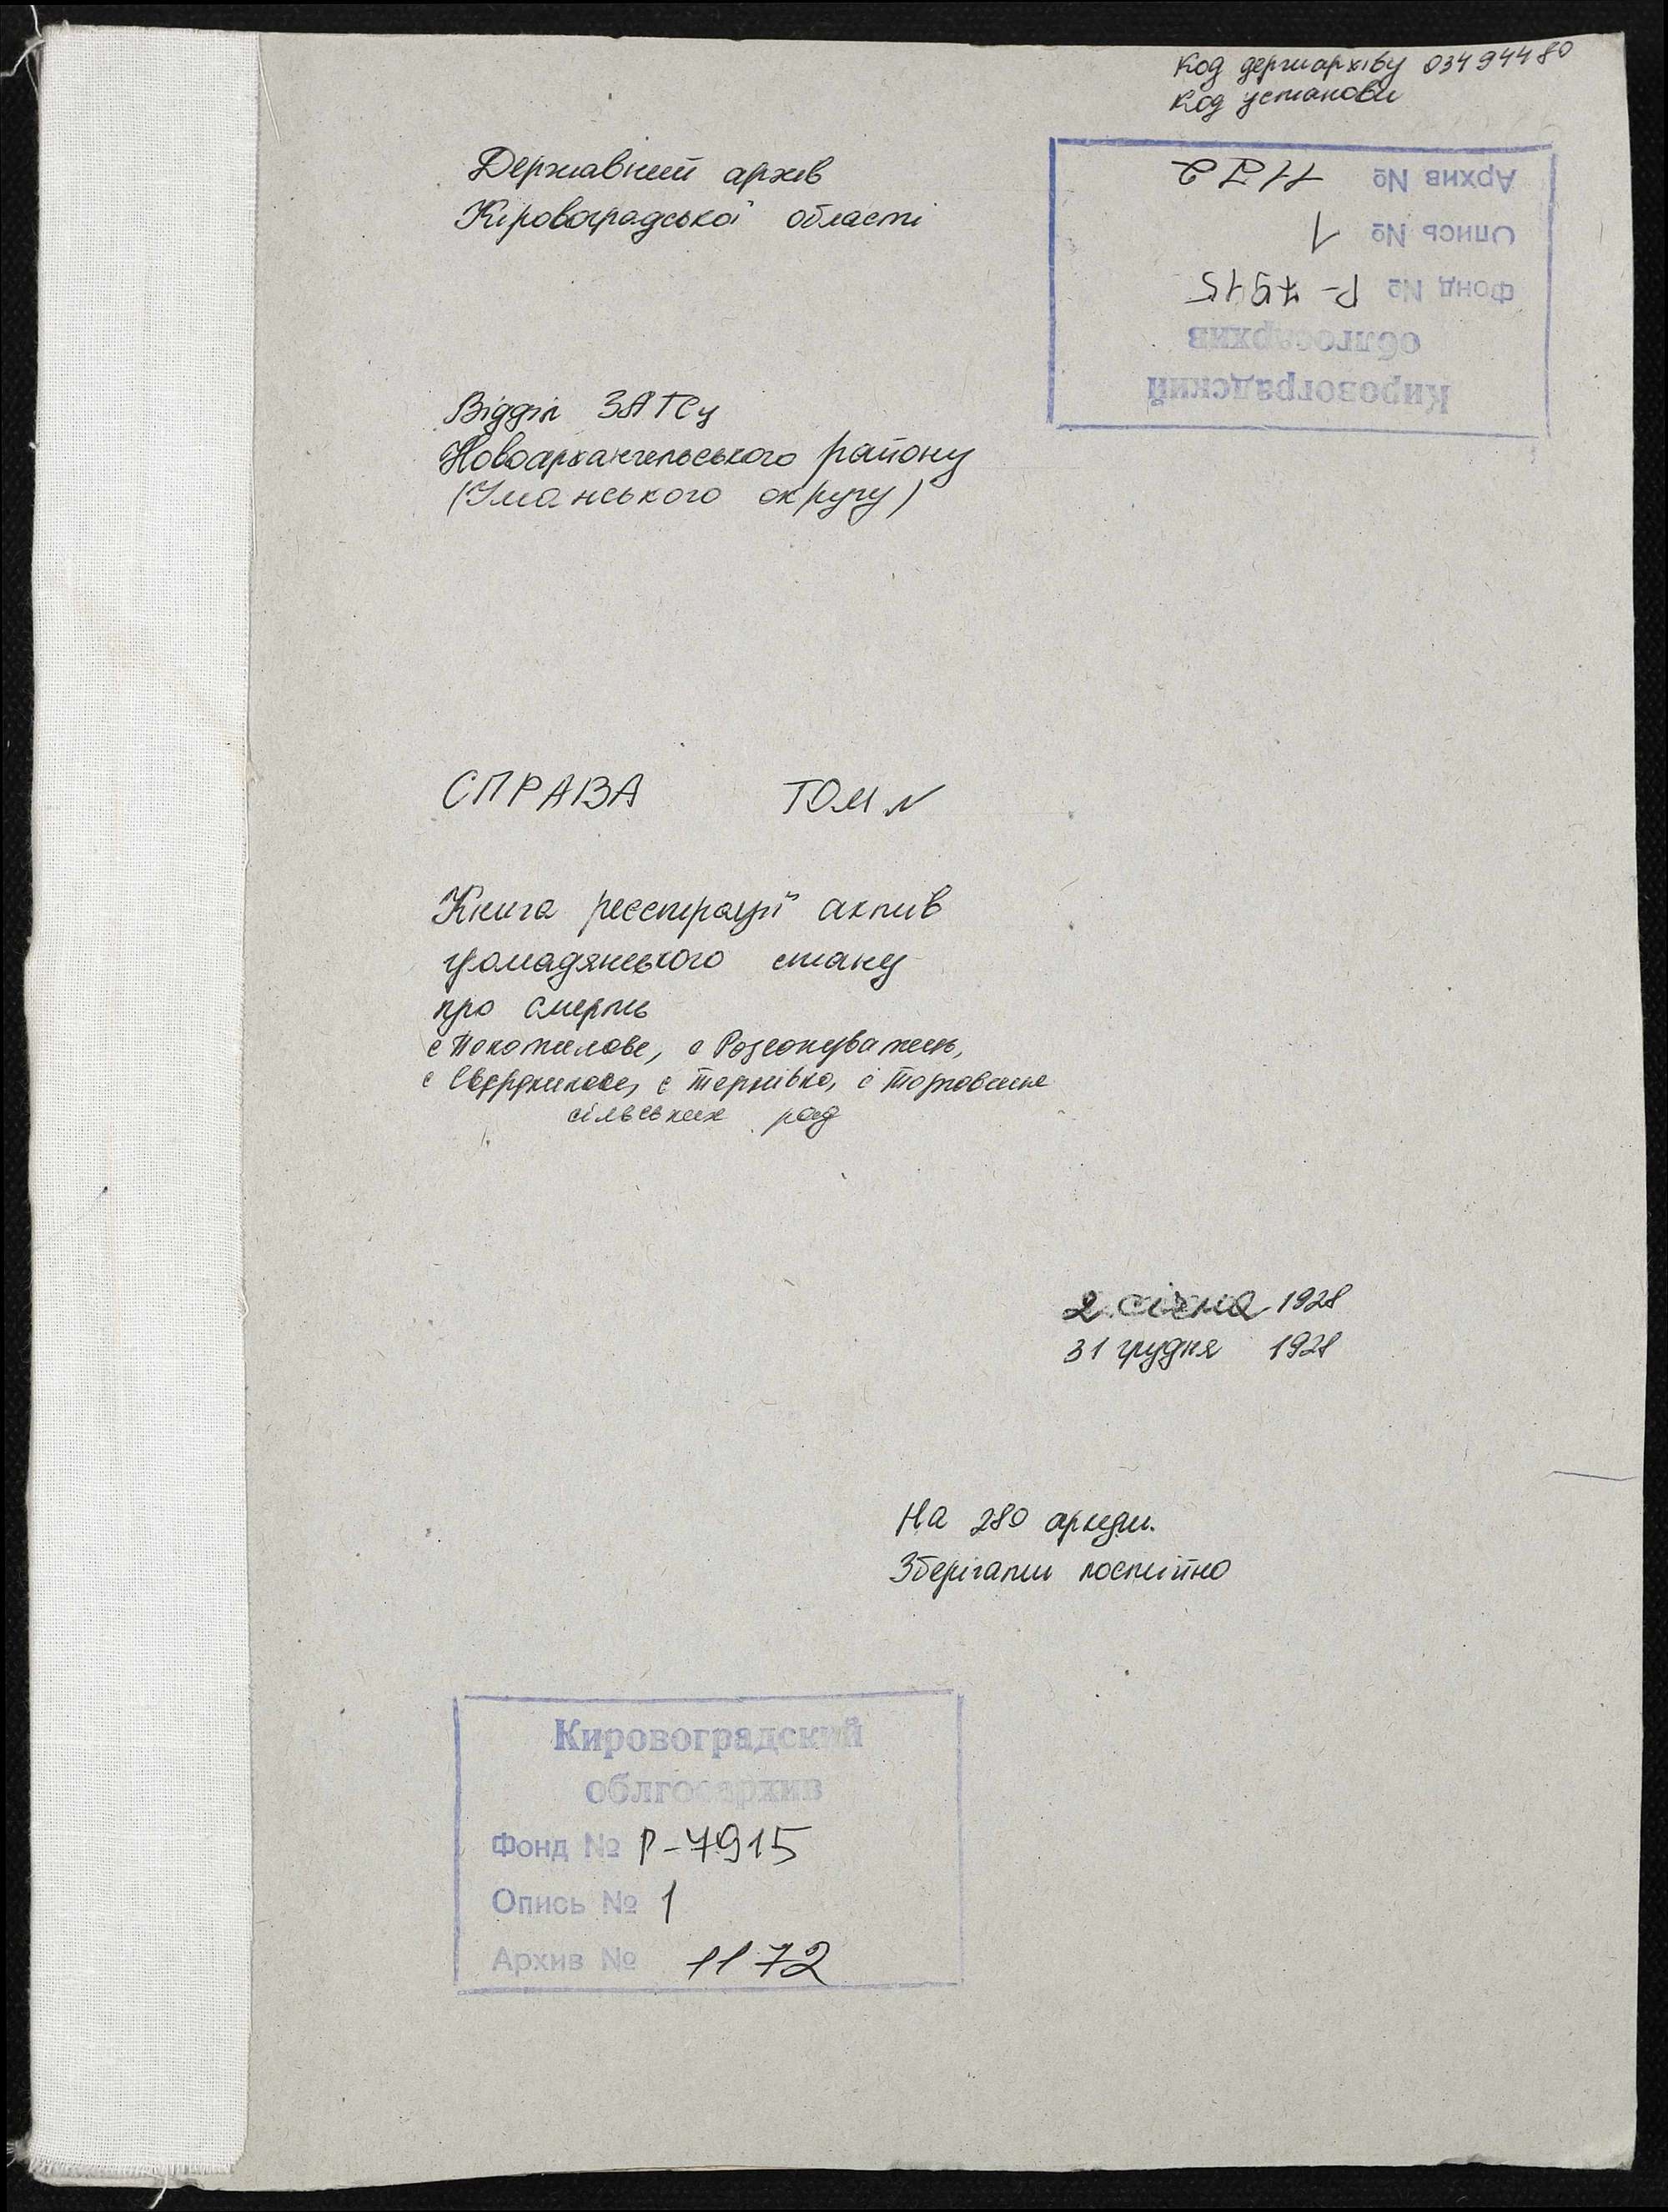 Код держархіву 03494480
Код установи
Архив № 1172
Опись № 1
Фонд № Р-7915
облгосархив
Кировоградский
Державний архів
Кіровоградської області
Відділ ЗАГСу
Новоархангельського району
(Уманського округу)
СПРАВА ТОМ N
Книга реєстрації актів
громадянського стану
про смерть
с Покотилове, с Розсохуватець,
с Свердликове, с Тернівка, с Торговиця
сільських рад
2 січня 1928
31 грудня 1928
На 280 аркуш.
Зберігати постійно
Кировоградский
облгосархив
Фонд № Р-7915
Опись № 1
Архив № 1172